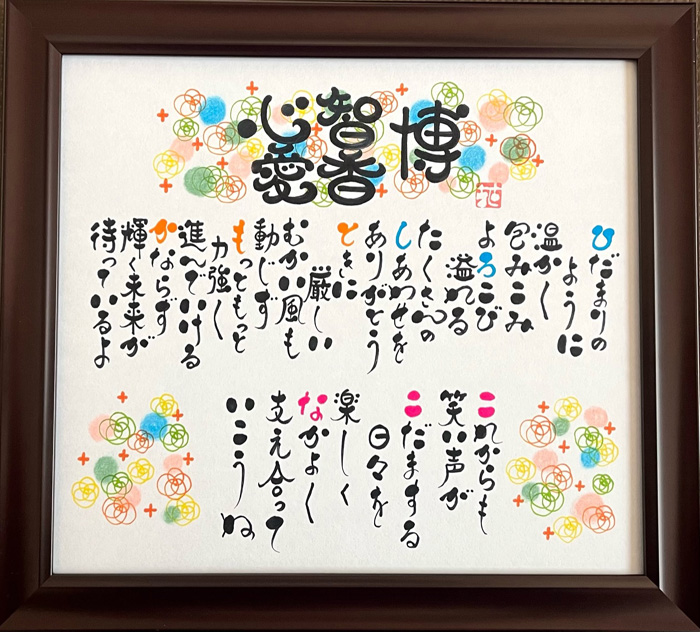 博
智香
心愛
ひだまりの
ように
温かく
包みこみ
よろこび
溢れる
たくさんの
しあわせを
ありがとう
ときに
厳しい
むかい風も
動じず
もっともっと
力強く
進んでいける
かならず
輝く未来が
待っているよ
これからも
笑い声が
こだまする
日々を
楽しく
なかよく
支え合って
いこうね